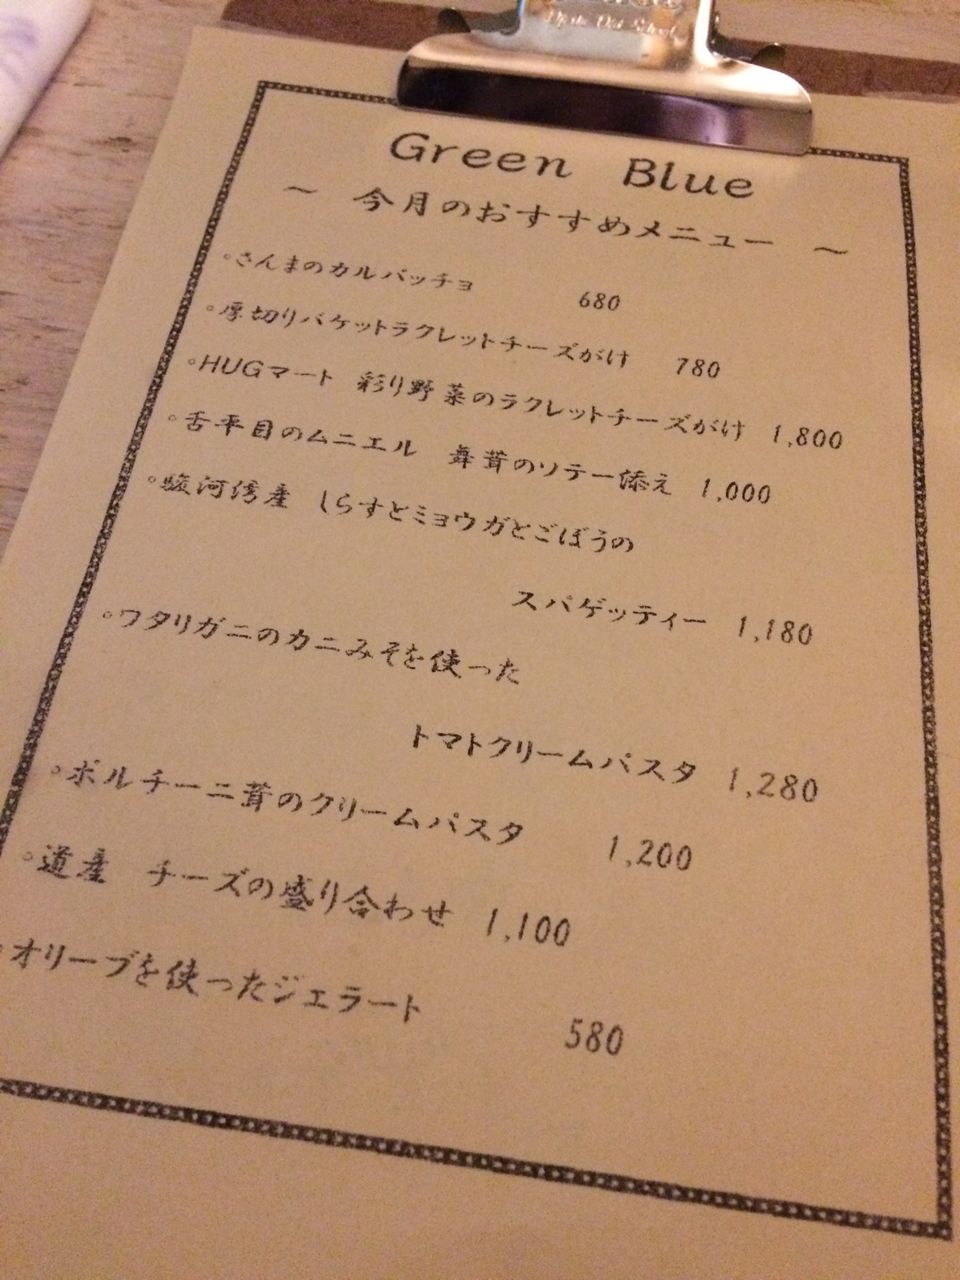 Green Blue
～ 今月のおすすめメニュー ～
◦さんまのカルパッチョ 680
◦厚切りバケットラクレットチーズがけ 780
◦HUGマート 彩り野菜のラクレットチーズがけ 1,800
◦舌平目のムニエル 舞茸のソテー添え 1,000
◦駿河湾産 しらすとミョウガとごぼうの
スパゲッティー 1,180
◦ワタリガニのカニみそを使った
トマトクリームパスタ 1,280
◦ポルチーニ茸のクリームパスタ 1,200
◦道産 チーズの盛り合わせ 1,100
◦オリーブを使ったジェラート 580